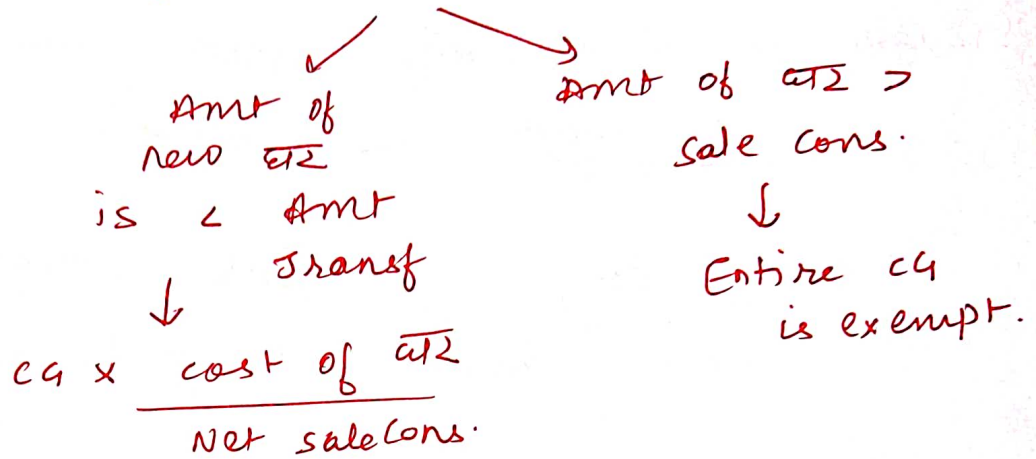 Amt of
new घर
is < Amt
Transf
↓
CG x cost of घर
Net sale Cons.
Amt of घर >
sale cons.
↓
Entire CG
is exempt.